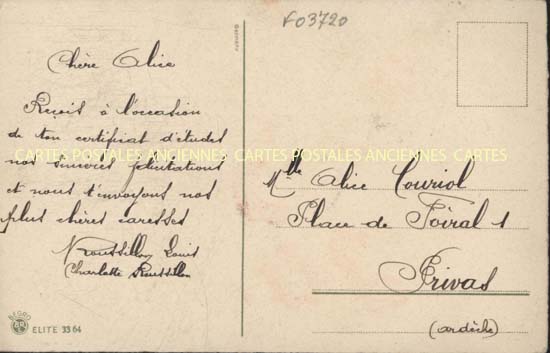 F03720
Chère Alice
Reçois à l'occasion
de ton certificat d'études
nos sincères félicitations
et nous t'envoyons nos
plus chères caresses
Roussillon Louis
Charlotte Roussillon
Mlle Alice Couriol
Place de Foiral 1
Privas
(ardèche)
CARTES POSTALES ANCIENNES CARTES POSTALES ANCIENNES CARTES
BEGRO
ELITE 3364